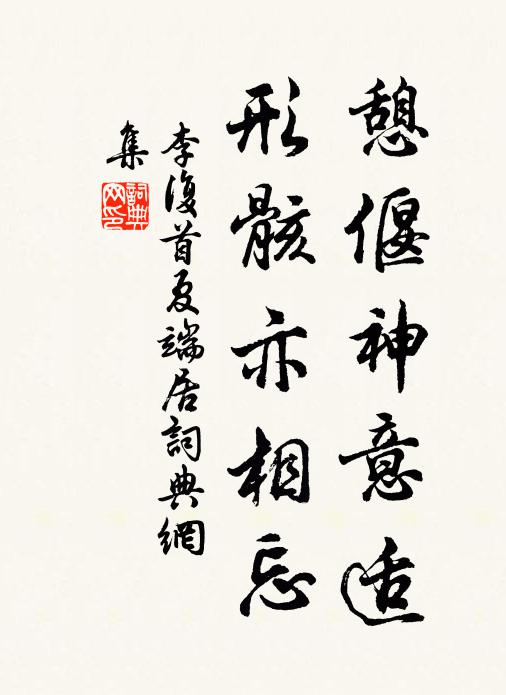 憩偃神意适
形骸亦相忘
李復首夏端居詞典網
集
詞典網印